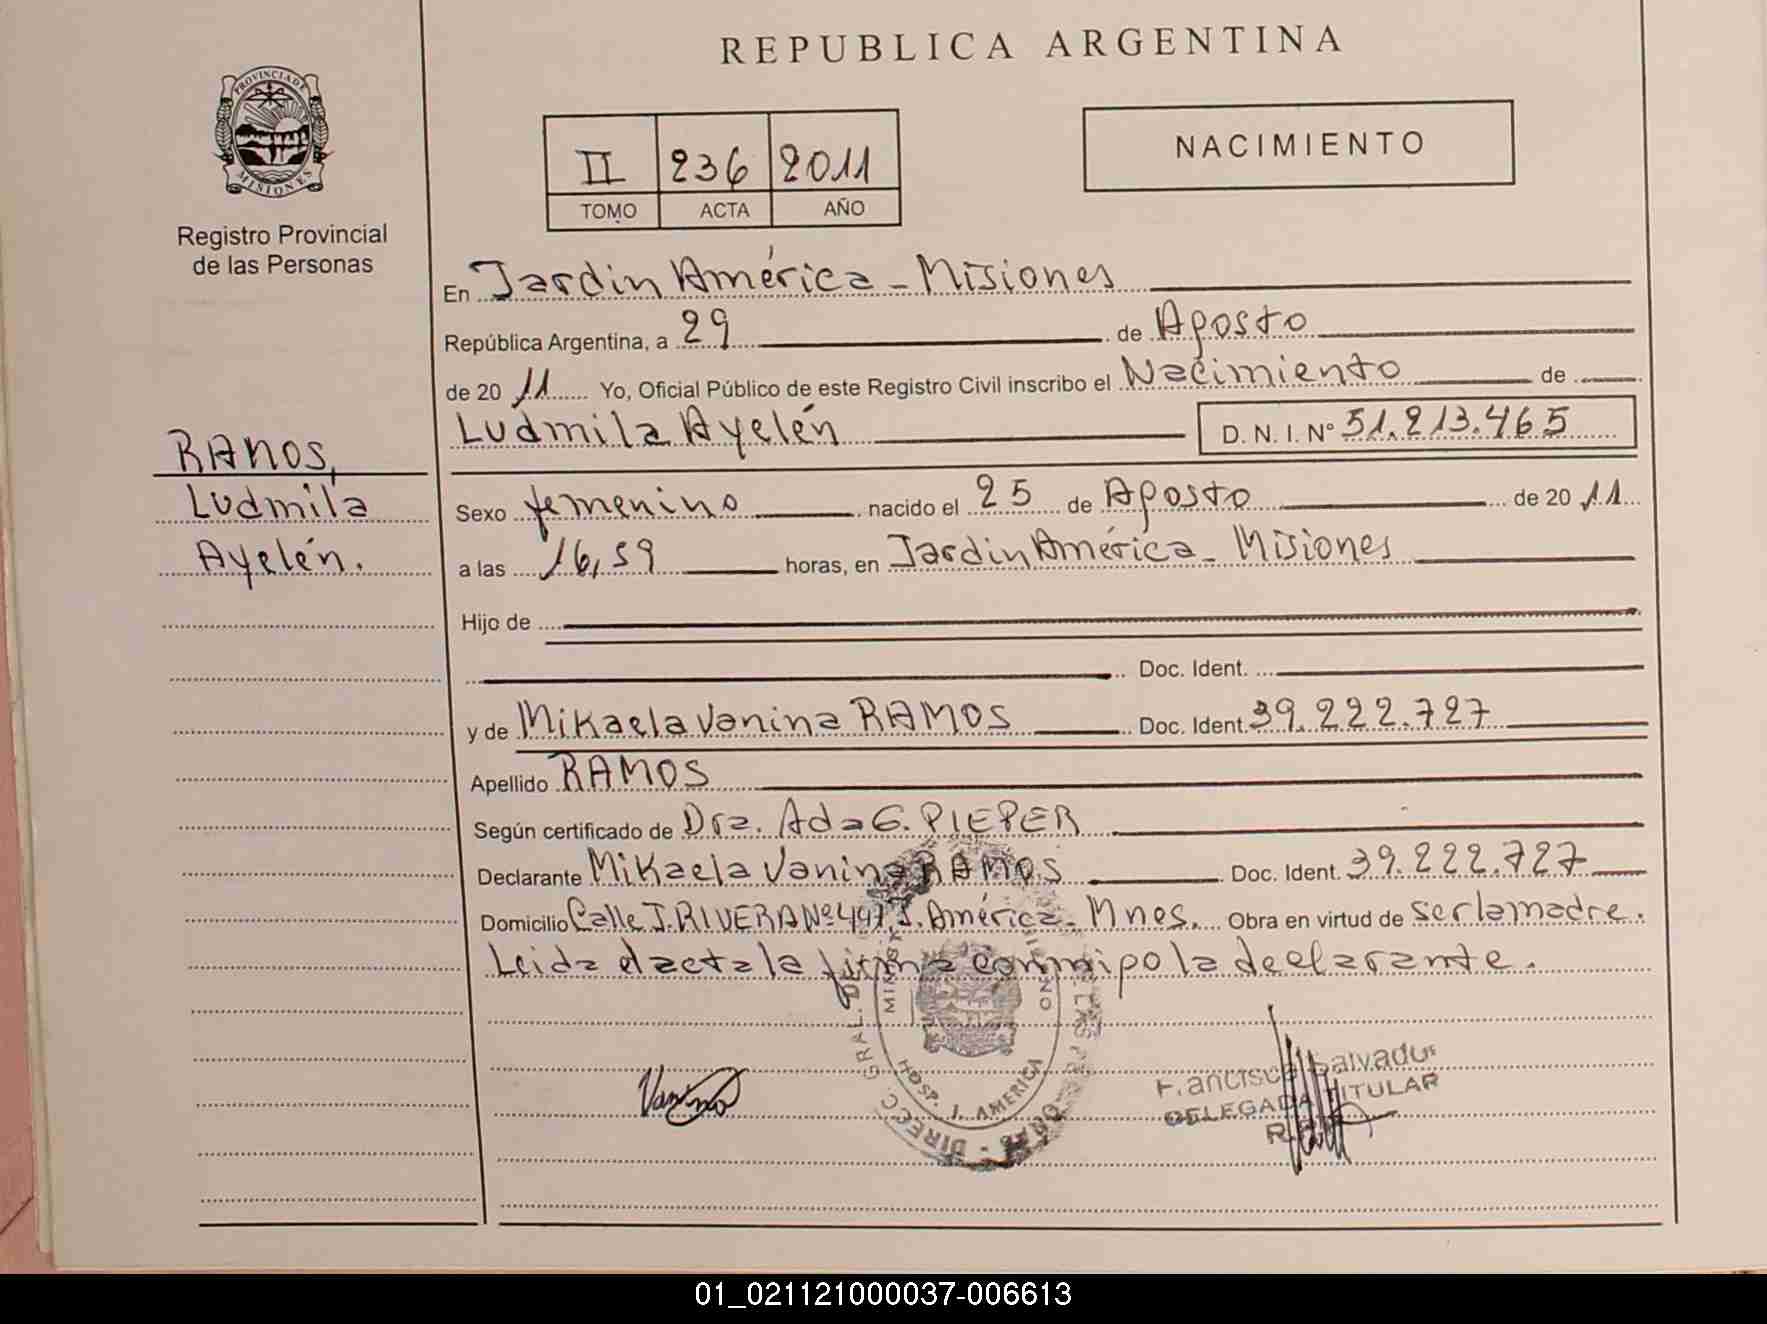 REPUBLICA ARGENTINA
PROVINCIA DE
MISIONES
Registro Provincial
de las Personas
II 236 2011
TOMO ACTA AÑO
NACIMIENTO
RAMOS,
Ludmila
Ayelén.
En Jardin América - Misiones
República Argentina, a 29 de Agosto
de 2011 Yo, Oficial Público de este Registro Civil inscribo el Nacimiento de
Ludmila Ayelén D. N. I. N° 51.213.465
Sexo femenino nacido el 25 de Agosto de 2011
a las 16,59 horas, en Jardin América - Misiones
Hijo de
Doc. Ident.
y de Mikaela Vanina RAMOS Doc. Ident. 39.222.727
Apellido RAMOS
Según certificado de Dra. Ada G. PIEPER
Declarante Mikaela Vanina RAMOS Doc. Ident. 39.222.727
Domicilio Calle J. RIVERA Nº 497 J. América - Mnes. Obra en virtud de ser la madre.
Leida el acta la firma conmigo la declarante.
HOSP. J. AMERICA
DIREC. GRAL. DE
Vanina
Francisca Salvador
DELEGADA TITULAR
01_021121000037-006613